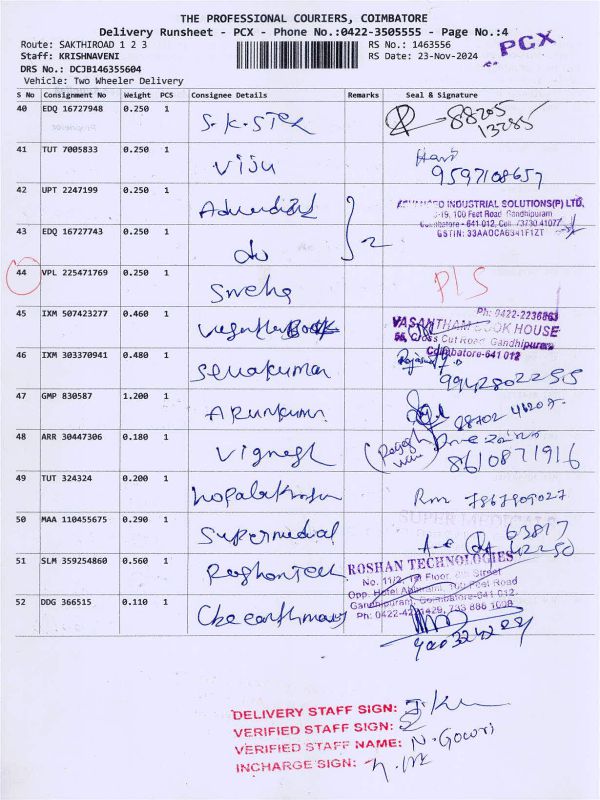 THE PROFESSIONAL COURIERS, COIMBATORE
Delivery Runsheet - PCX - Phone No.:0422-3505555 - Page No.:4
Route: SAKTHIROAD 1 2 3
RS No.: 1463556
PCX
Staff: KRISHNAVENI
RS Date: 23-Nov-2024
DRS No.: DCJB146355604
Vehicle: Two Wheeler Delivery
S No Consignment No Weight PCS Consignee Details Remarks Seal & Signature
40 EDQ 16727948 0.250 1 S.K.STEL 88205
13285
41 TUT 7005833 0.250 1 Viju Hari
9597108657
42 UPT 2247199 0.250 1
ADVANCED INDUSTRIAL SOLUTIONS(P) LTD,
C-19, 100 Feet Road Gandhipuram
Coimbatore - 641 012, Cell : 73730 41077
GSTIN: 33AAOCA6341F1ZT
43 EDQ 16727743 0.250 1 do 2
44 VPL 225471769 0.250 1 Sneha PLS
45 IXM 507423277 0.460 1
Ph: 0422-2236863
VASANTHAM BOOK HOUSE
55, Cross Cut Road, Gandhipuram
Coimbatore-641 012
46 IXM 303370941 0.480 1 Senakumar
9942802255
47 GMP 830587 1.200 1 Arunkum
48 ARR 30447306 0.180 1 Vignesh
8610871916
49 TUT 324324 0.200 1 Rm 7867909027
50 MAA 110455675 0.290 1 Supermedial 63817
42250
51 SLM 359254860 0.560 1 RoshanTech
ROSHAN TECHNOLOGIES
No. 11/2, 1st Floor, 8th Street
100 Feet Road
Gandhipuram, Coimbatore-641 012.
52 DDG 366515 0.110 1
DELIVERY STAFF SIGN:
VERIFIED STAFF SIGN:
VERIFIED STAFF NAME: N. Gowri
INCHARGE SIGN: